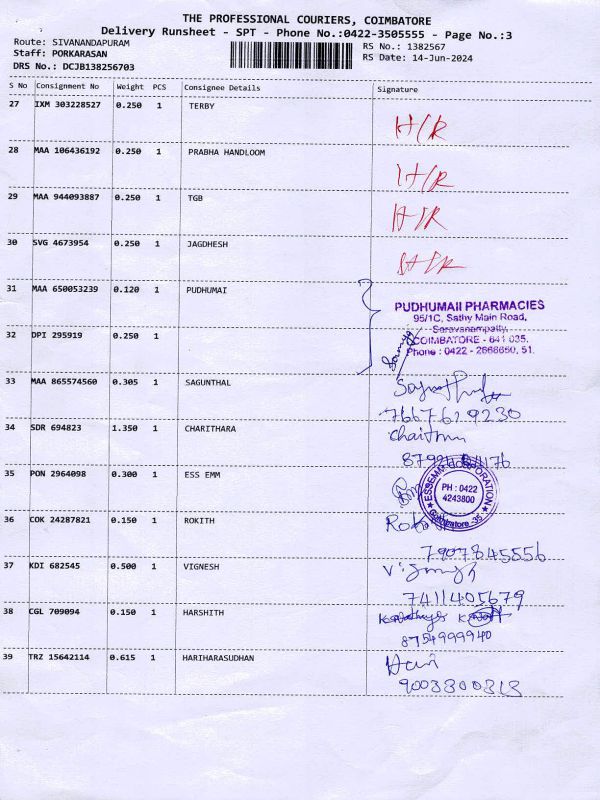 THE PROFESSIONAL COURIERS, COIMBATORE
Delivery Runsheet - SPT - Phone No.:0422-3505555 - Page No.:3
Route: SIVANANDAPURAM
RS No.: 1382567
Staff: PORKARASAN
RS Date: 14-Jun-2024
DRS No.: DCJB138256703
S No Consignment No Weight PCS Consignee Details Signature
27 IXM 303228527 0.250 1 TERBY
H/R
28 MAA 106436192 0.250 1 PRABHA HANDLOOM
H/R
29 MAA 944093887 0.250 1 TGB
H/R
30 SVG 4673954 0.250 1 JAGDHESH
31 MAA 650053239 0.120 1 PUDHUMAI
PUDHUMAII PHARMACIES
95/1C, Sathy Main Road,
Saravanampatty,
COIMBATORE - 641 035.
Phone : 0422 - 2668650, 51.
32 DPI 295919 0.250 1
33 MAA 865574560 0.305 1 SAGUNTHAL
7667619230
34 SDR 694823 1.350 1 CHARITHARA
35 PON 2964098 0.300 1 ESS EMM
ESSEMM CORPORATION
PH : 0422
4243800
Coimbatore -35
36 COK 24287821 0.150 1 ROKITH
7907845556
37 KDI 682545 0.500 1 VIGNESH
7411405679
38 CGL 709094 0.150 1 HARSHITH
8754999940
39 TRZ 15642114 0.615 1 HARIHARASUDHAN
Hari